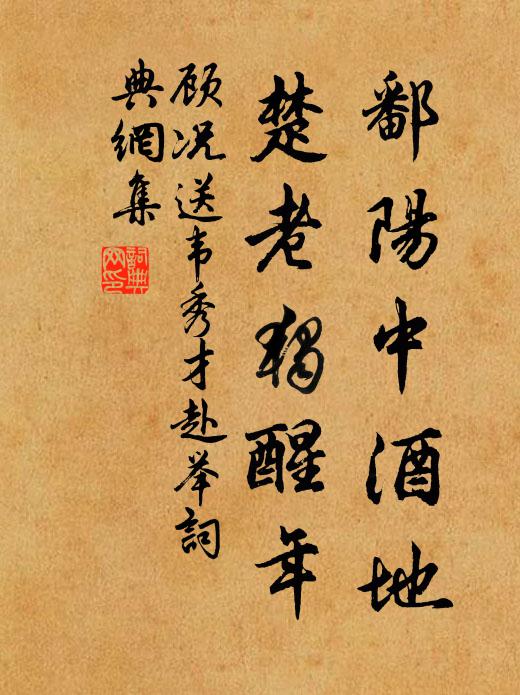 鄱陽中酒地
楚老獨醒年
顾况送韦秀才赴举詞
典網集
詞典
网印